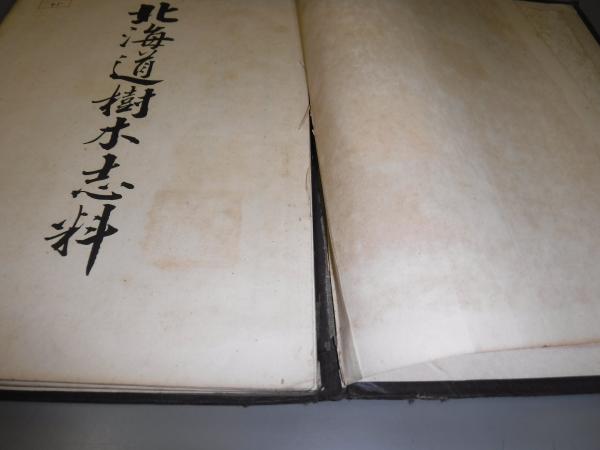 北海道樹木志料